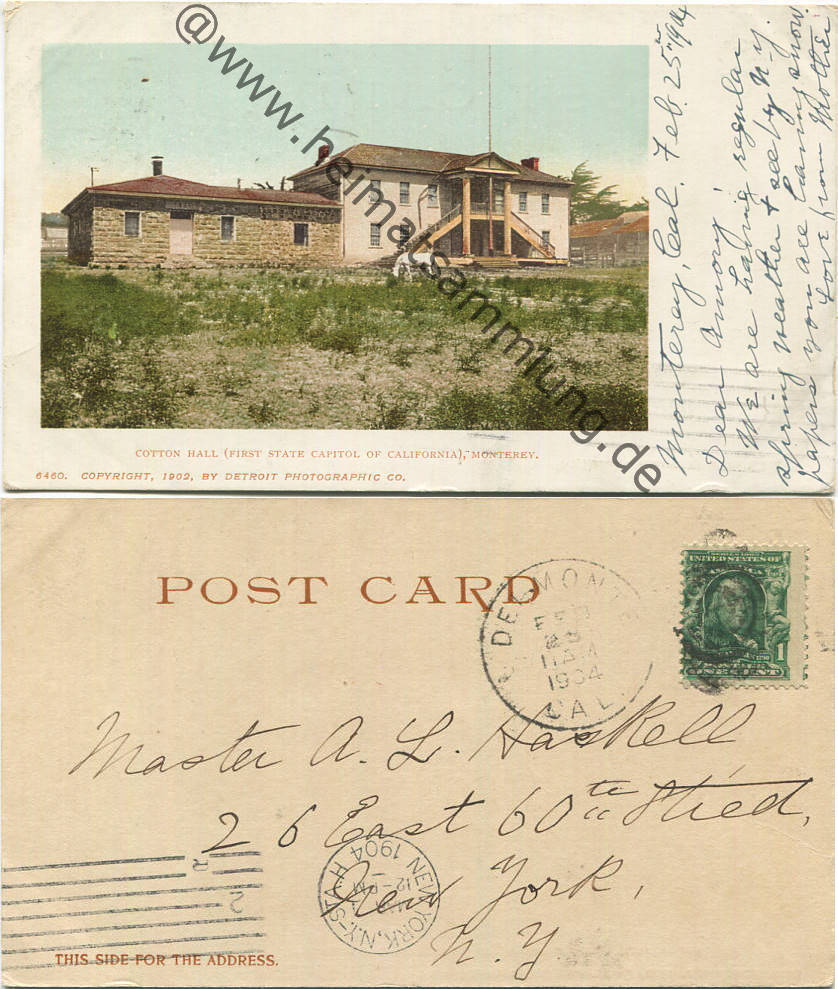 @www.heimatsammlung.de
COTTON HALL (FIRST STATE CAPITOL OF CALIFORNIA), MONTEREY.
6460. COPYRIGHT, 1902, BY DETROIT PHOTOGRAPHIC CO.
Monterey, Cal. Feb. 25" 1904
Dear Amory!
We are having regular
spring weather & see by N.Y.
papers you are having snow.
Love from Mother
POST CARD
DEL MONTE
FEB
11 AM
1904
CAL.
SERIES 1902
UNITED STATES OF
AMERICA
1
ONE CENT
Master A. L. Haskell
26 East 60th Street,
New York,
N.Y.
NEW YORK, N.Y. STA. H
12-PM
1904
2
2
THIS SIDE FOR THE ADDRESS.